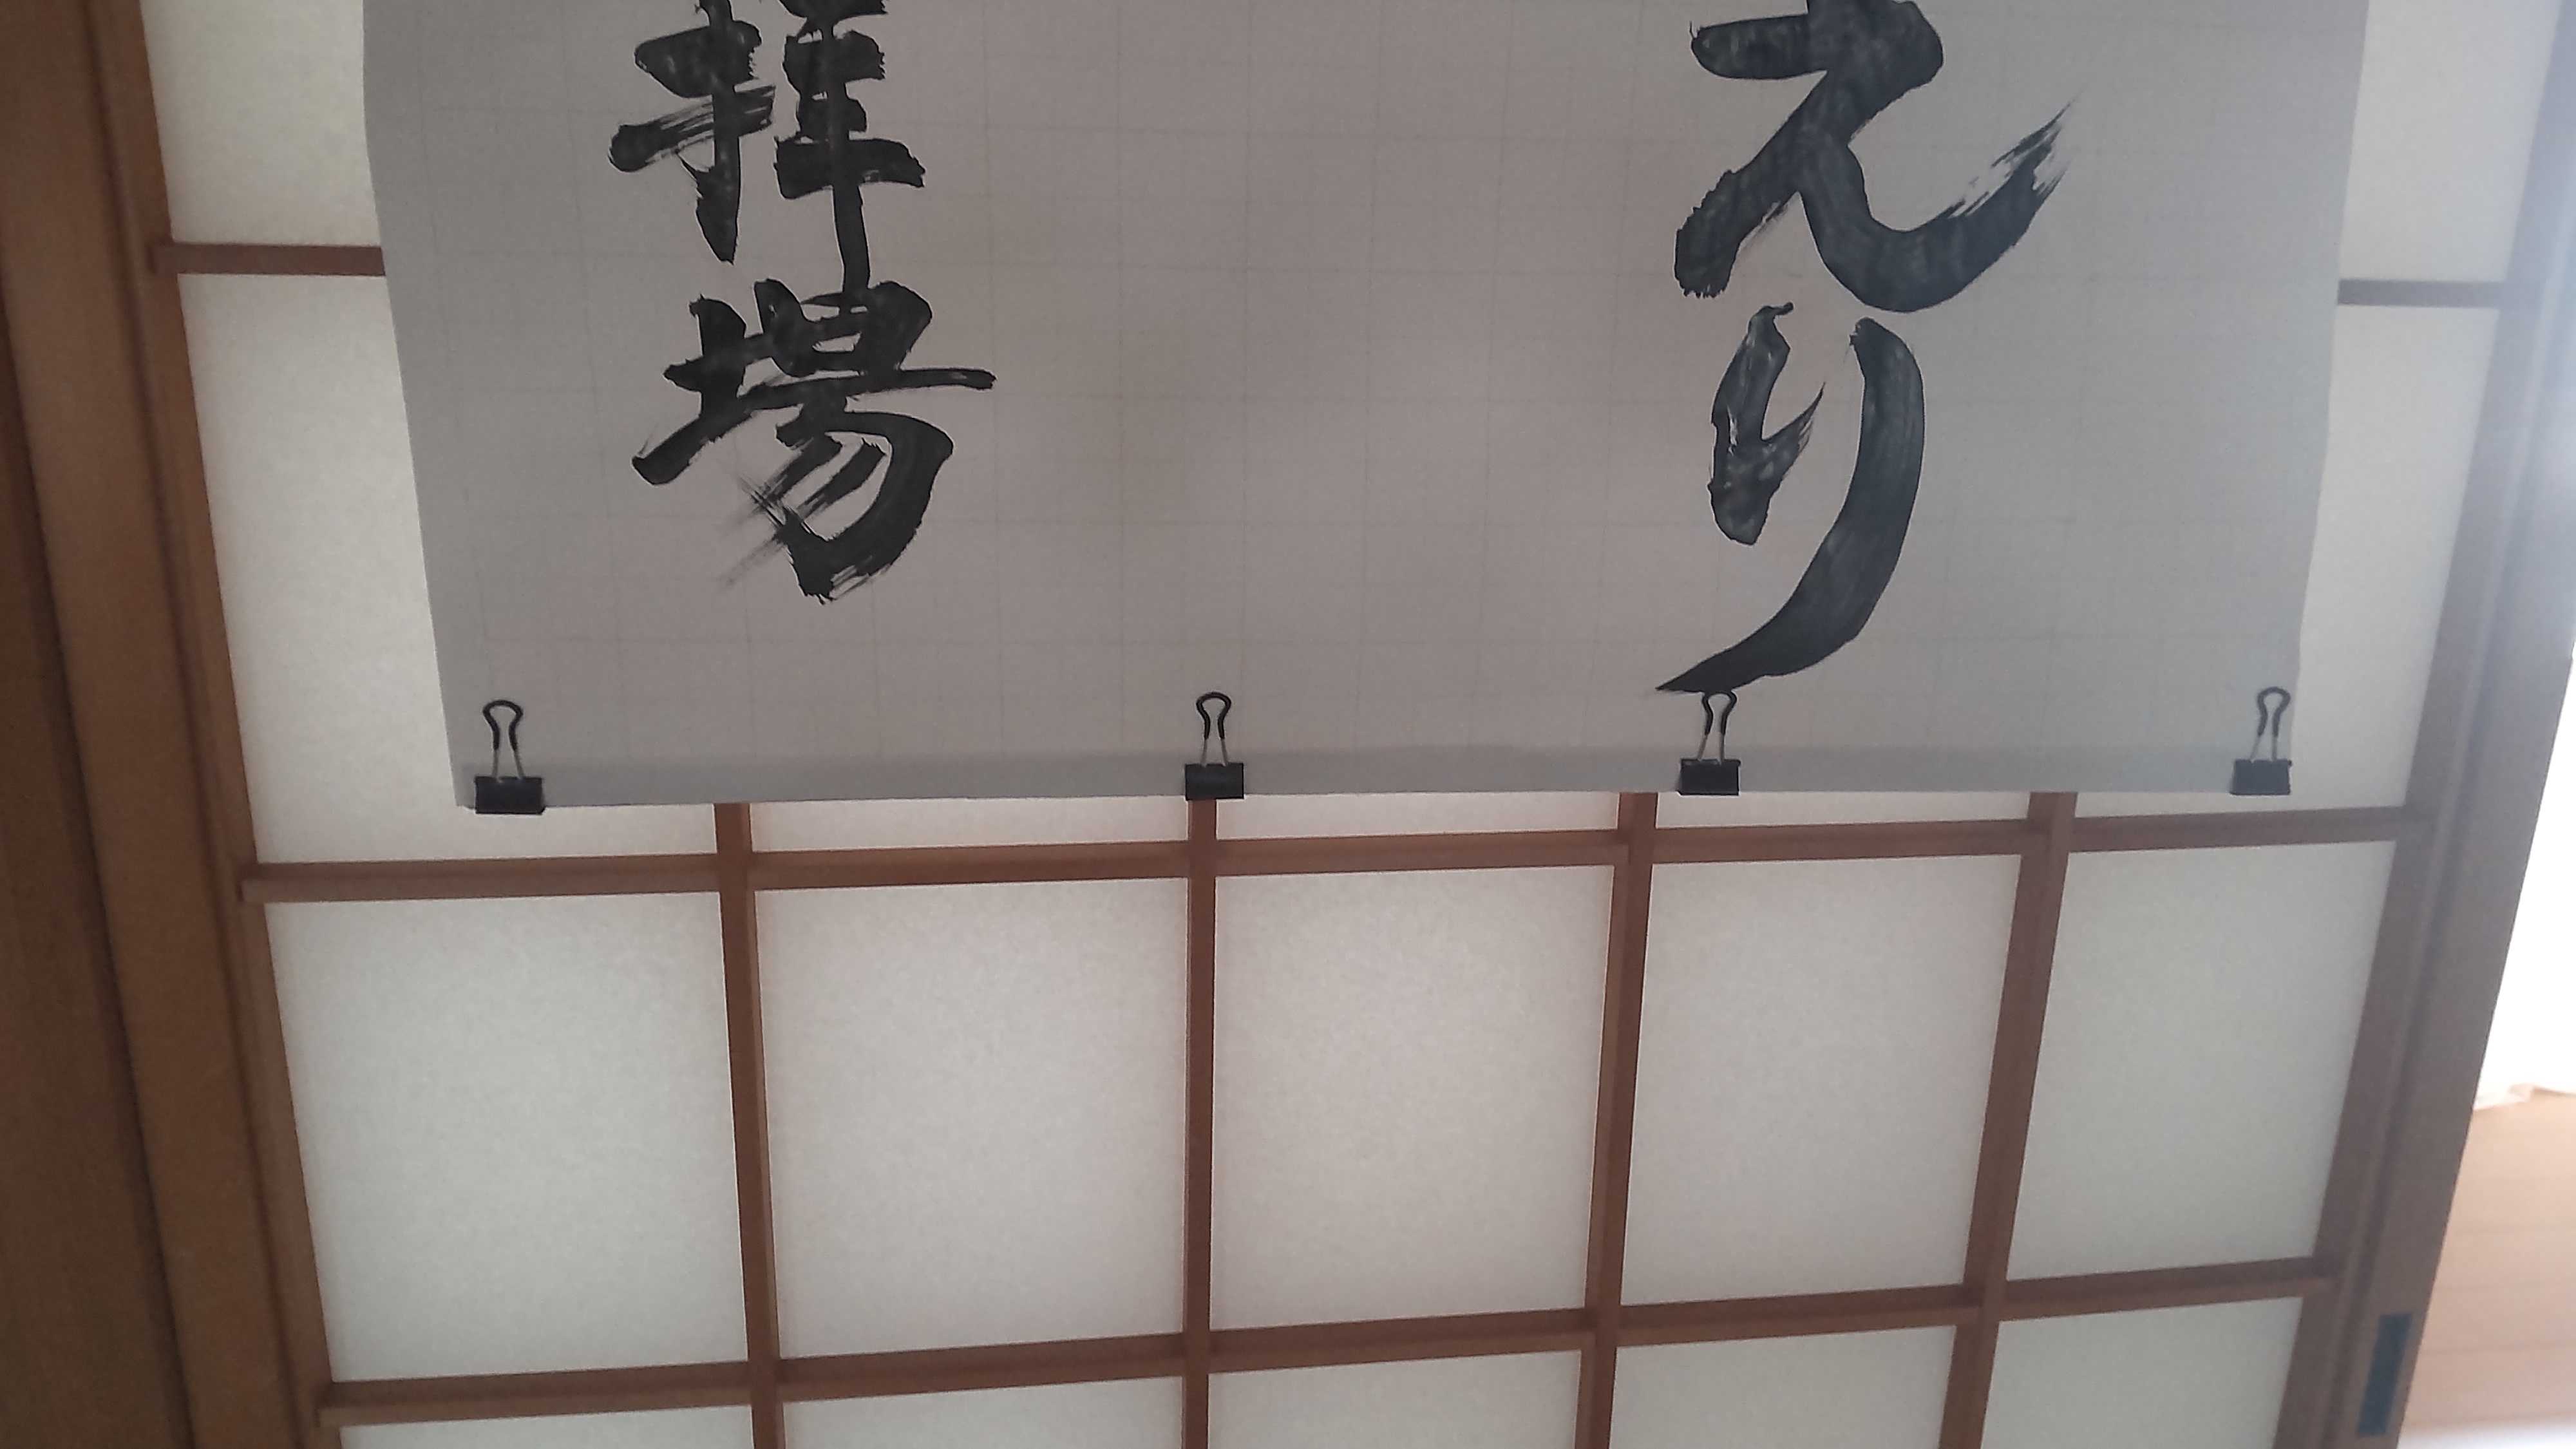 えり
拝場